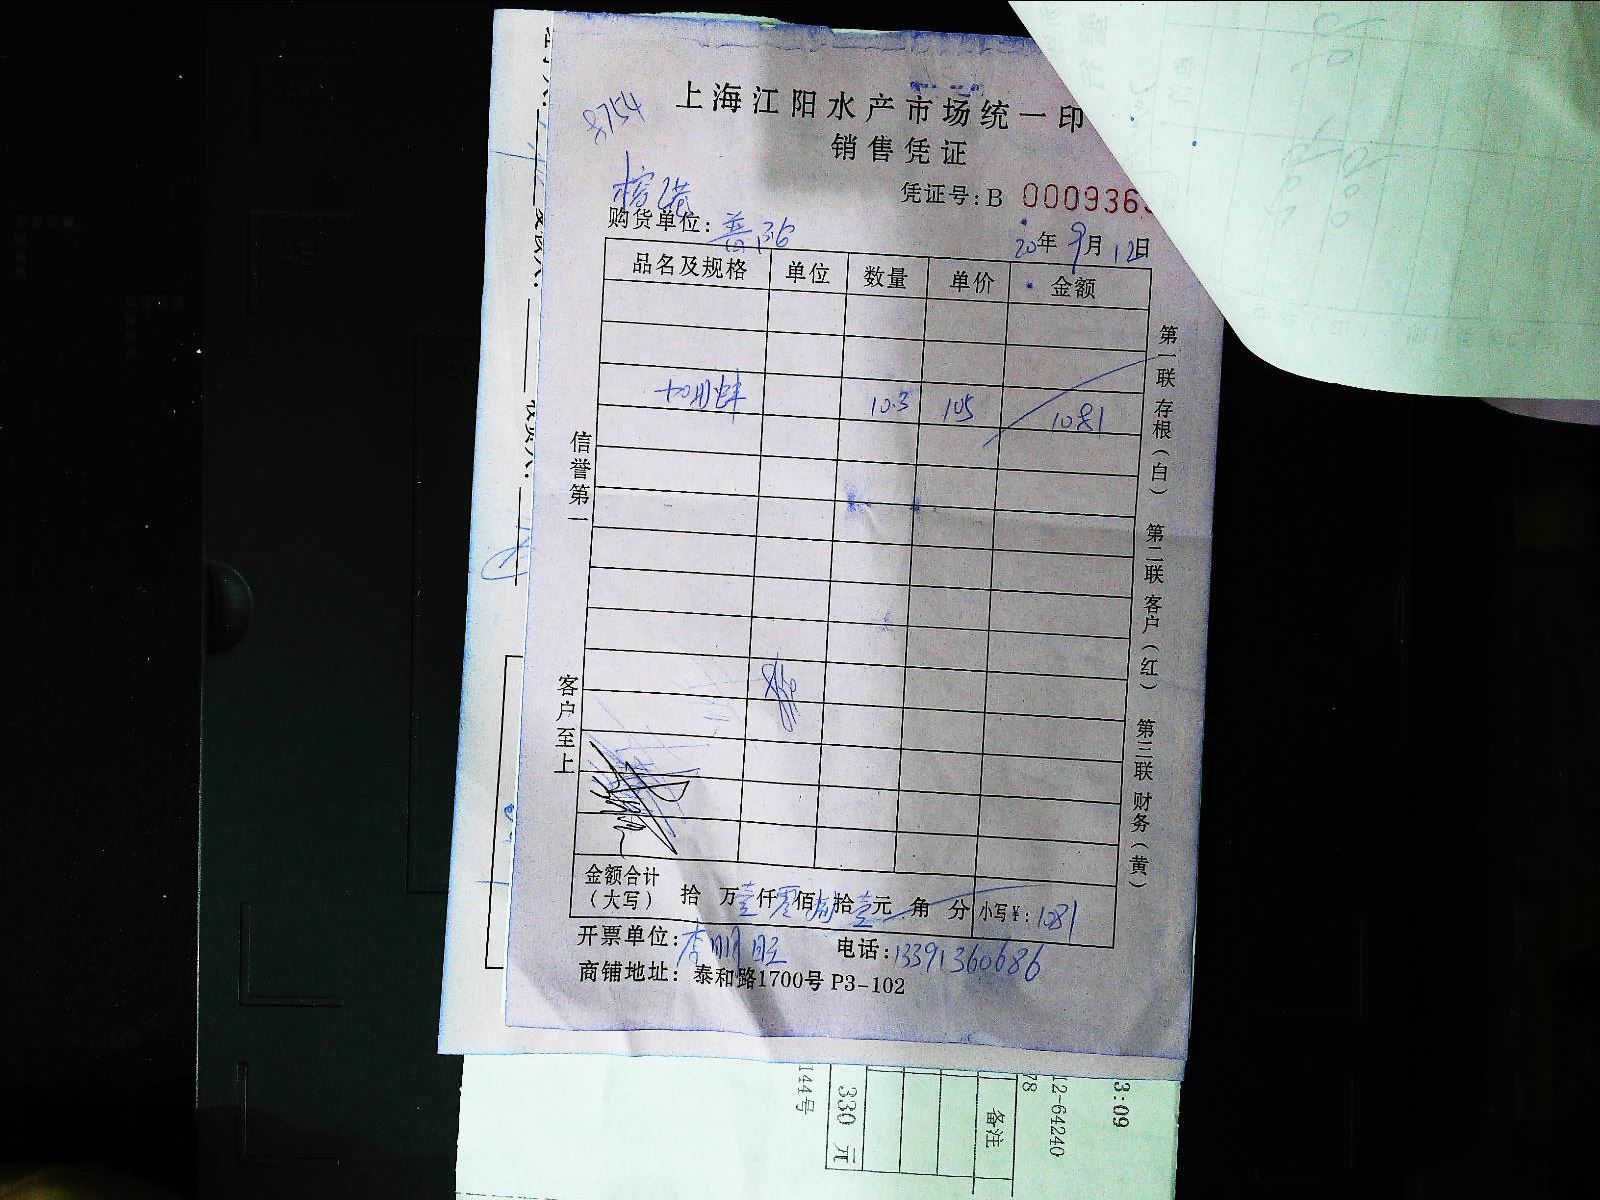 8754
上海江阳水产市场统一印
销售凭证
凭证号:B 000936
购货单位: 普陀
20年9月12日
品名及规格 单位 数量 单价 金额
10.3 105 1081
信誉第一
客户至上
第一联 存根（白） 第二联 客户（红） 第三联 财务（黄）
金额合计（大写） 拾 万壹仟零佰捌拾壹元 角 分 小写¥: 1081
开票单位: 李明旺 电话: 13391360686
商铺地址: 泰和路1700号 P3-102
144号
330 元
备注
78
12-64240
3:09